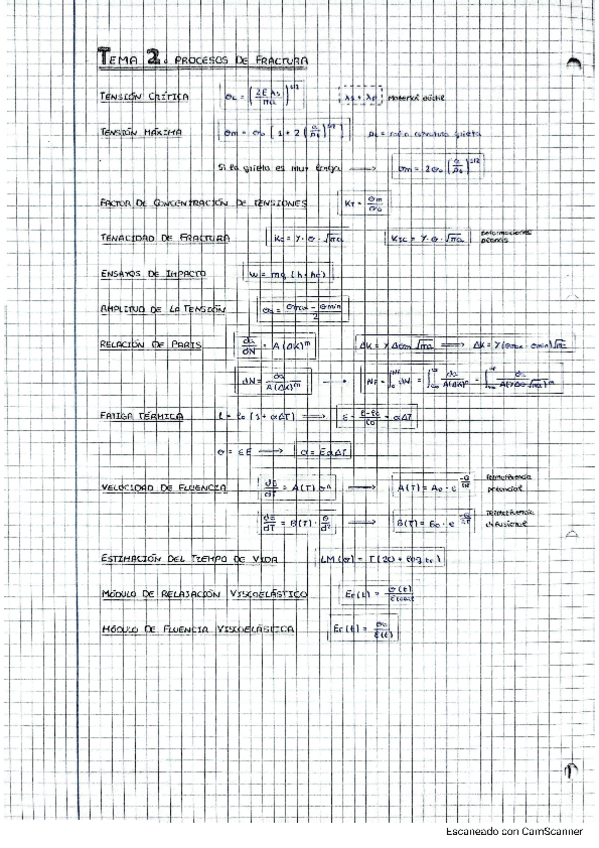 TEMA 2. PROCESOS DE FRACTURA
TENSIÓN CRÍTICA σc = (2Eγs/πa)^1/2 γs + γp Material dúctil
TENSIÓN MÁXIMA σm = σo [1 + 2(a/ρe)^1/2]
Si la grieta es muy → σm = 2σo (a/ρe)^1/2
FACTOR DE CONCENTRACIÓN DE TENSIONES Kt = σm/σo
TENACIDAD DE FRACTURA Kc = Y · σ · √πa KIC = Y · σ · √πa deformaciones planas
ENSAYOS DE IMPACTO W = mg (h - h')
AMPLITUD DE LA TENSIÓN σa = σmax - σmin / 2
RELACIÓN DE PARIS da/dN = A(ΔK)^m ΔK = Y Δσ √πa ⟹ ΔK = Y(σmax - σmin)√πa
dN = da/A(ΔK)^m → NF = ∫ dN = ∫ da/A(ΔK)^m = ∫ da/A(YΔσ√πa)^m
FATIGA TÉRMICA l = lo (1 + αΔT) ⟹ ε = l-lo/lo = αΔT
σ = εE → σ = EαΔT
VELOCIDAD DE FLUENCIA dε/dT = A(T) σ^n → A(T) = Ao · e^-Q/RT
dε/dT = B(T) · σ/d² → B(T) = Bo · e^-Q/RT
ESTIMACIÓN DEL TIEMPO DE VIDA LM(σ) = T(20 + log tr)
MÓDULO DE RELAJACIÓN VISCOELÁSTICO Er(t) = σ(t)/
MÓDULO DE FLUENCIA VISCOELÁSTICA Ec(t) = σo/ε(t)
Escaneado con CamScanner